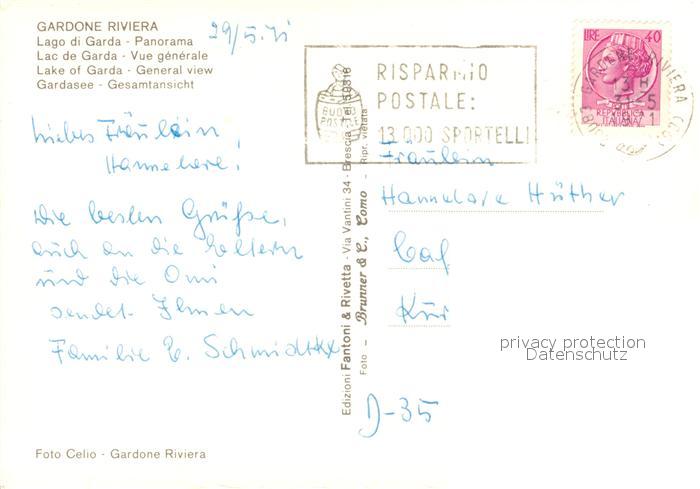 GARDONE RIVIERA
Lago di Garda - Panorama
Lac de Garda - Vue générale
Lake of Garda - General view
Gardasee - Gesamtansicht
29/5.71
Liebes Fräulein
Hannelore,
Die besten Grüße,
auch an die Eltern
und die Omi
sendet Ihnen
Familie E. Schmidtke
Foto Celio - Gardone Riviera
Edizioni Fantoni & Rivetta - Via Vantini 34 - Brescia - Tel. 50316
Foto - Brunner & C., Como - Ripr. vietata
BUONO
POSTALE
RISPARMIO
POSTALE:
13.000 SPORTELLI
LIRE 40
REPVBBLICA
ITALIANA
GARDONE RIVIERA
13 H
31-5
Fräulein
Hannelore Hüther
D-35
privacy protection
Datenschutz